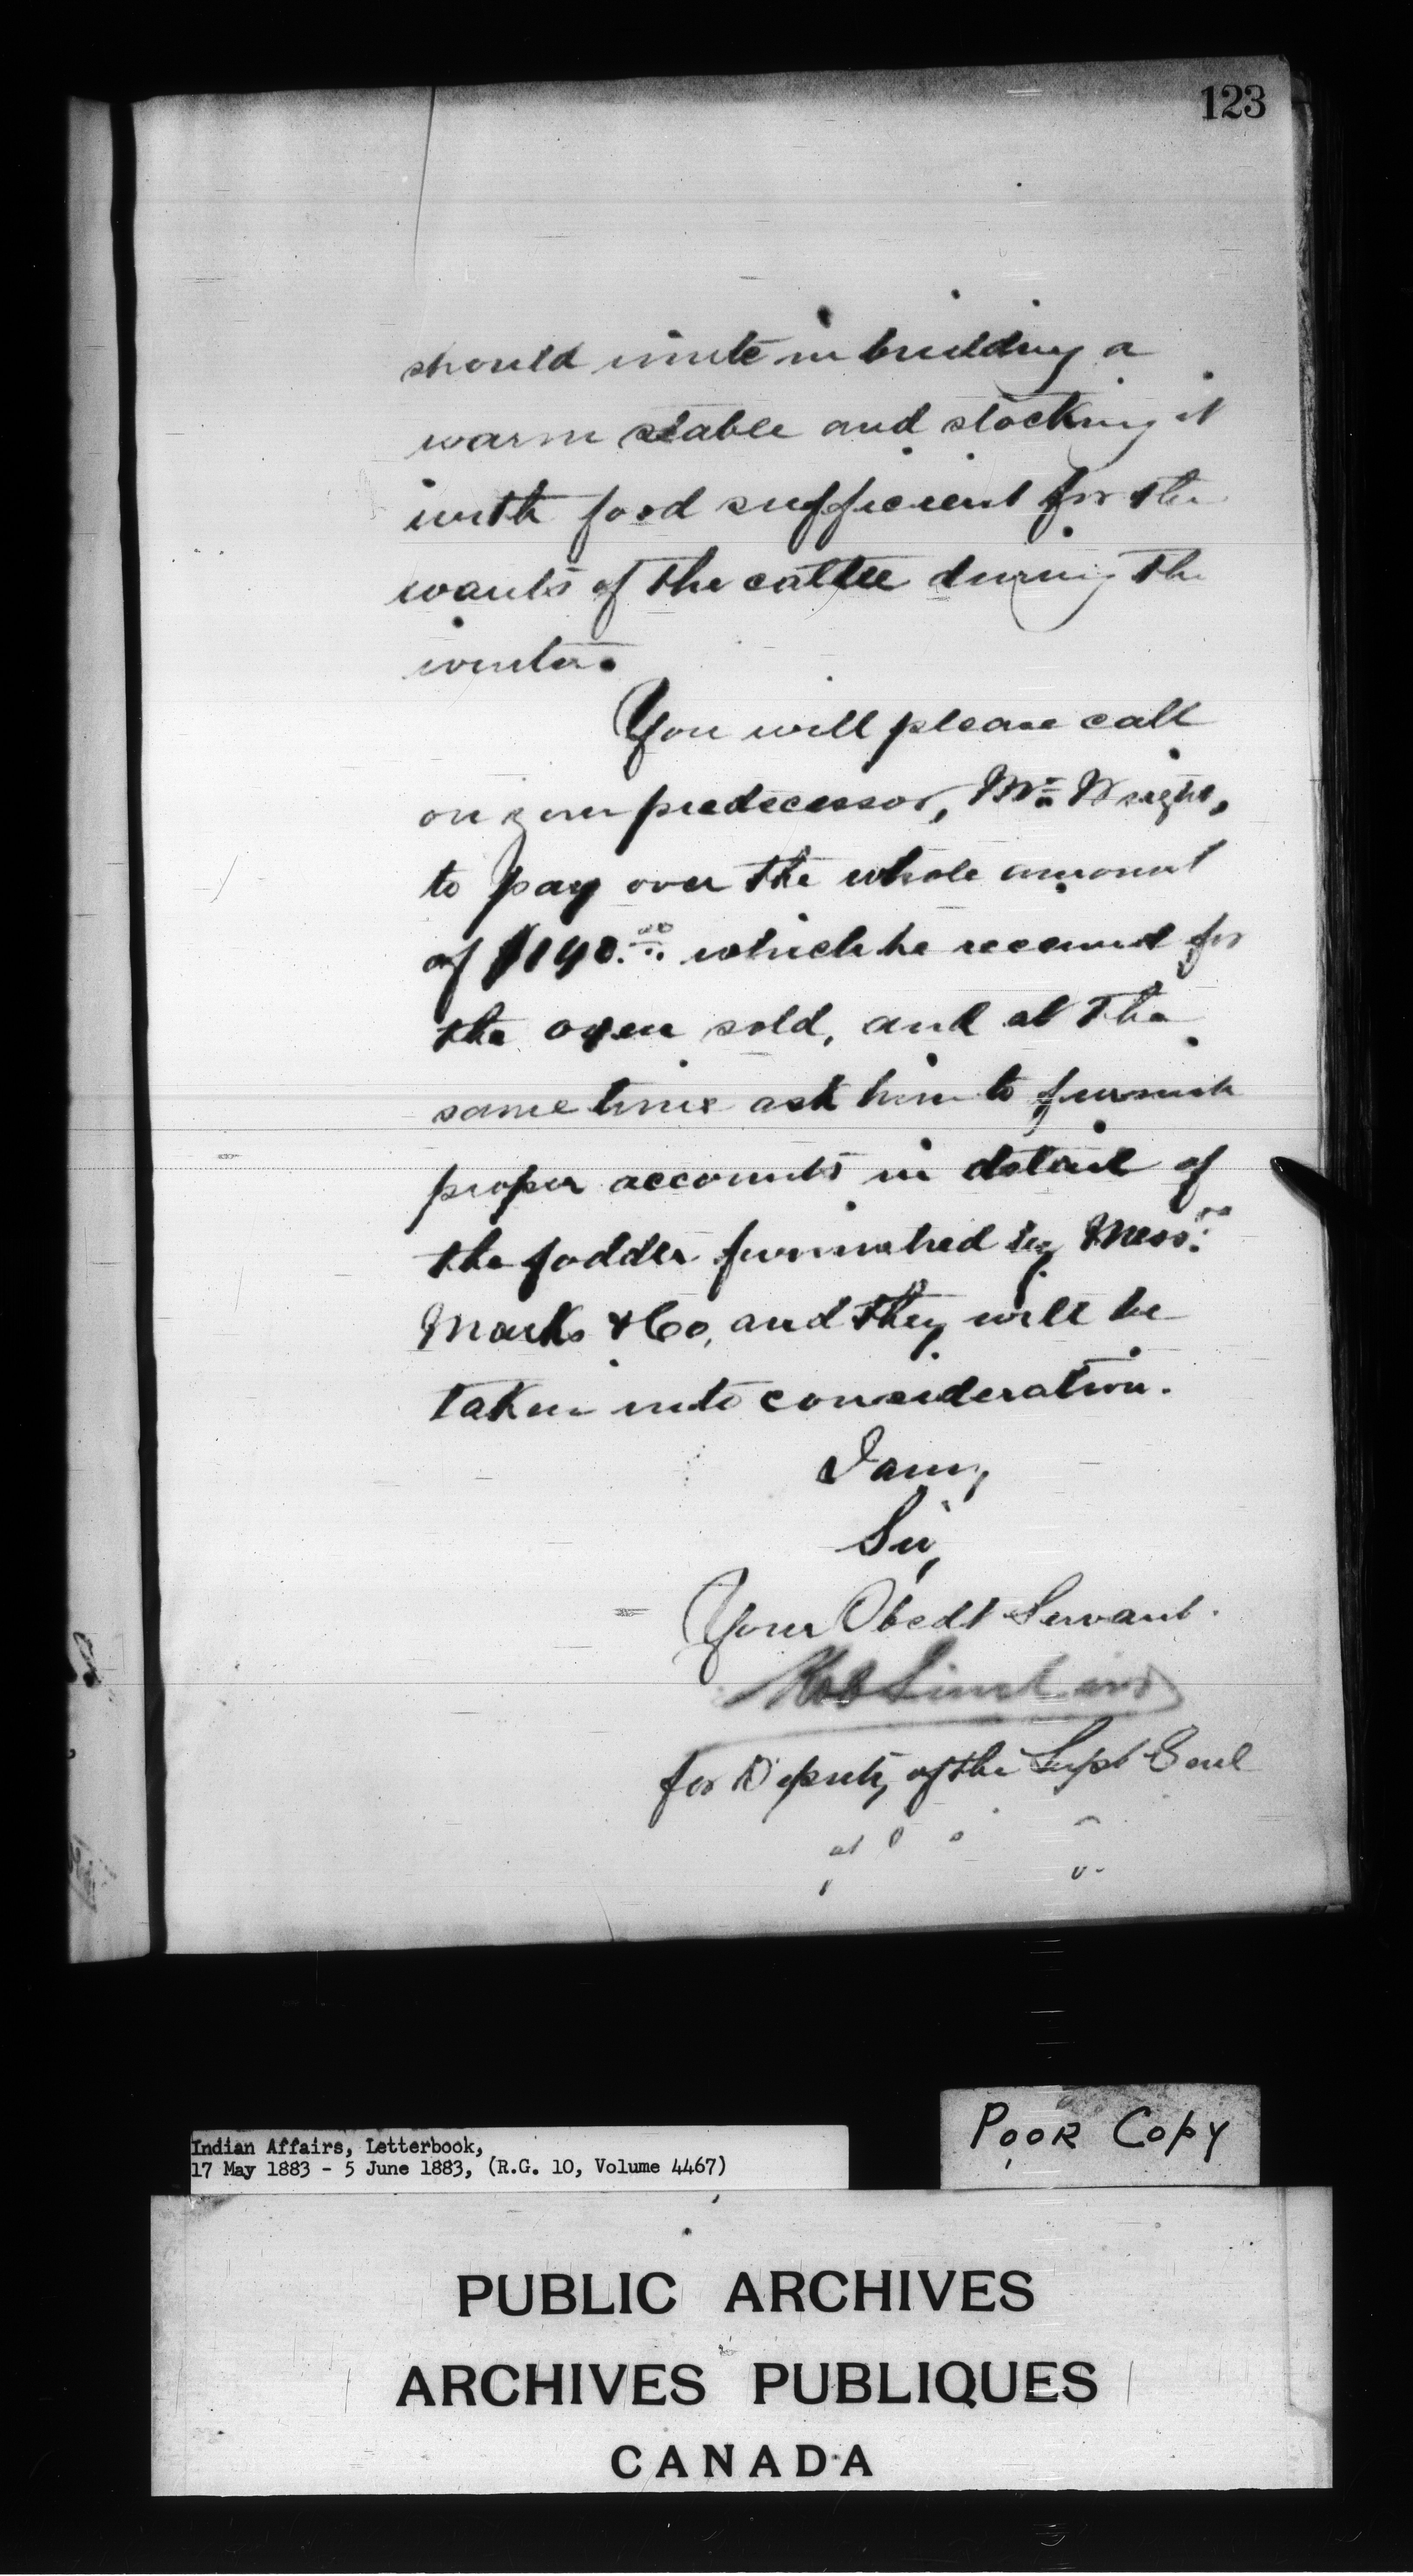 123
should unite in building a
warm stable and stocking it
with food sufficient for the
wants of the cattle during the
winter.
You will please call
on your predecessor, Mr. Wright,
to pay over the whole amount
of $190.00 which he received for
the oxen sold, and at the
same time ask him to furnish
proper accounts in detail of
the fodder furnished by Messrs.
Marks & Co, and they will be
taken into consideration.
I am,
Sir,
Your Obedt Servant.
for Deputy of the Supt Genl
Indian Affairs, Letterbook,
17 May 1883 - 5 June 1883, (R.G. 10, Volume 4467)
POOR COPY
PUBLIC ARCHIVES
ARCHIVES PUBLIQUES
CANADA